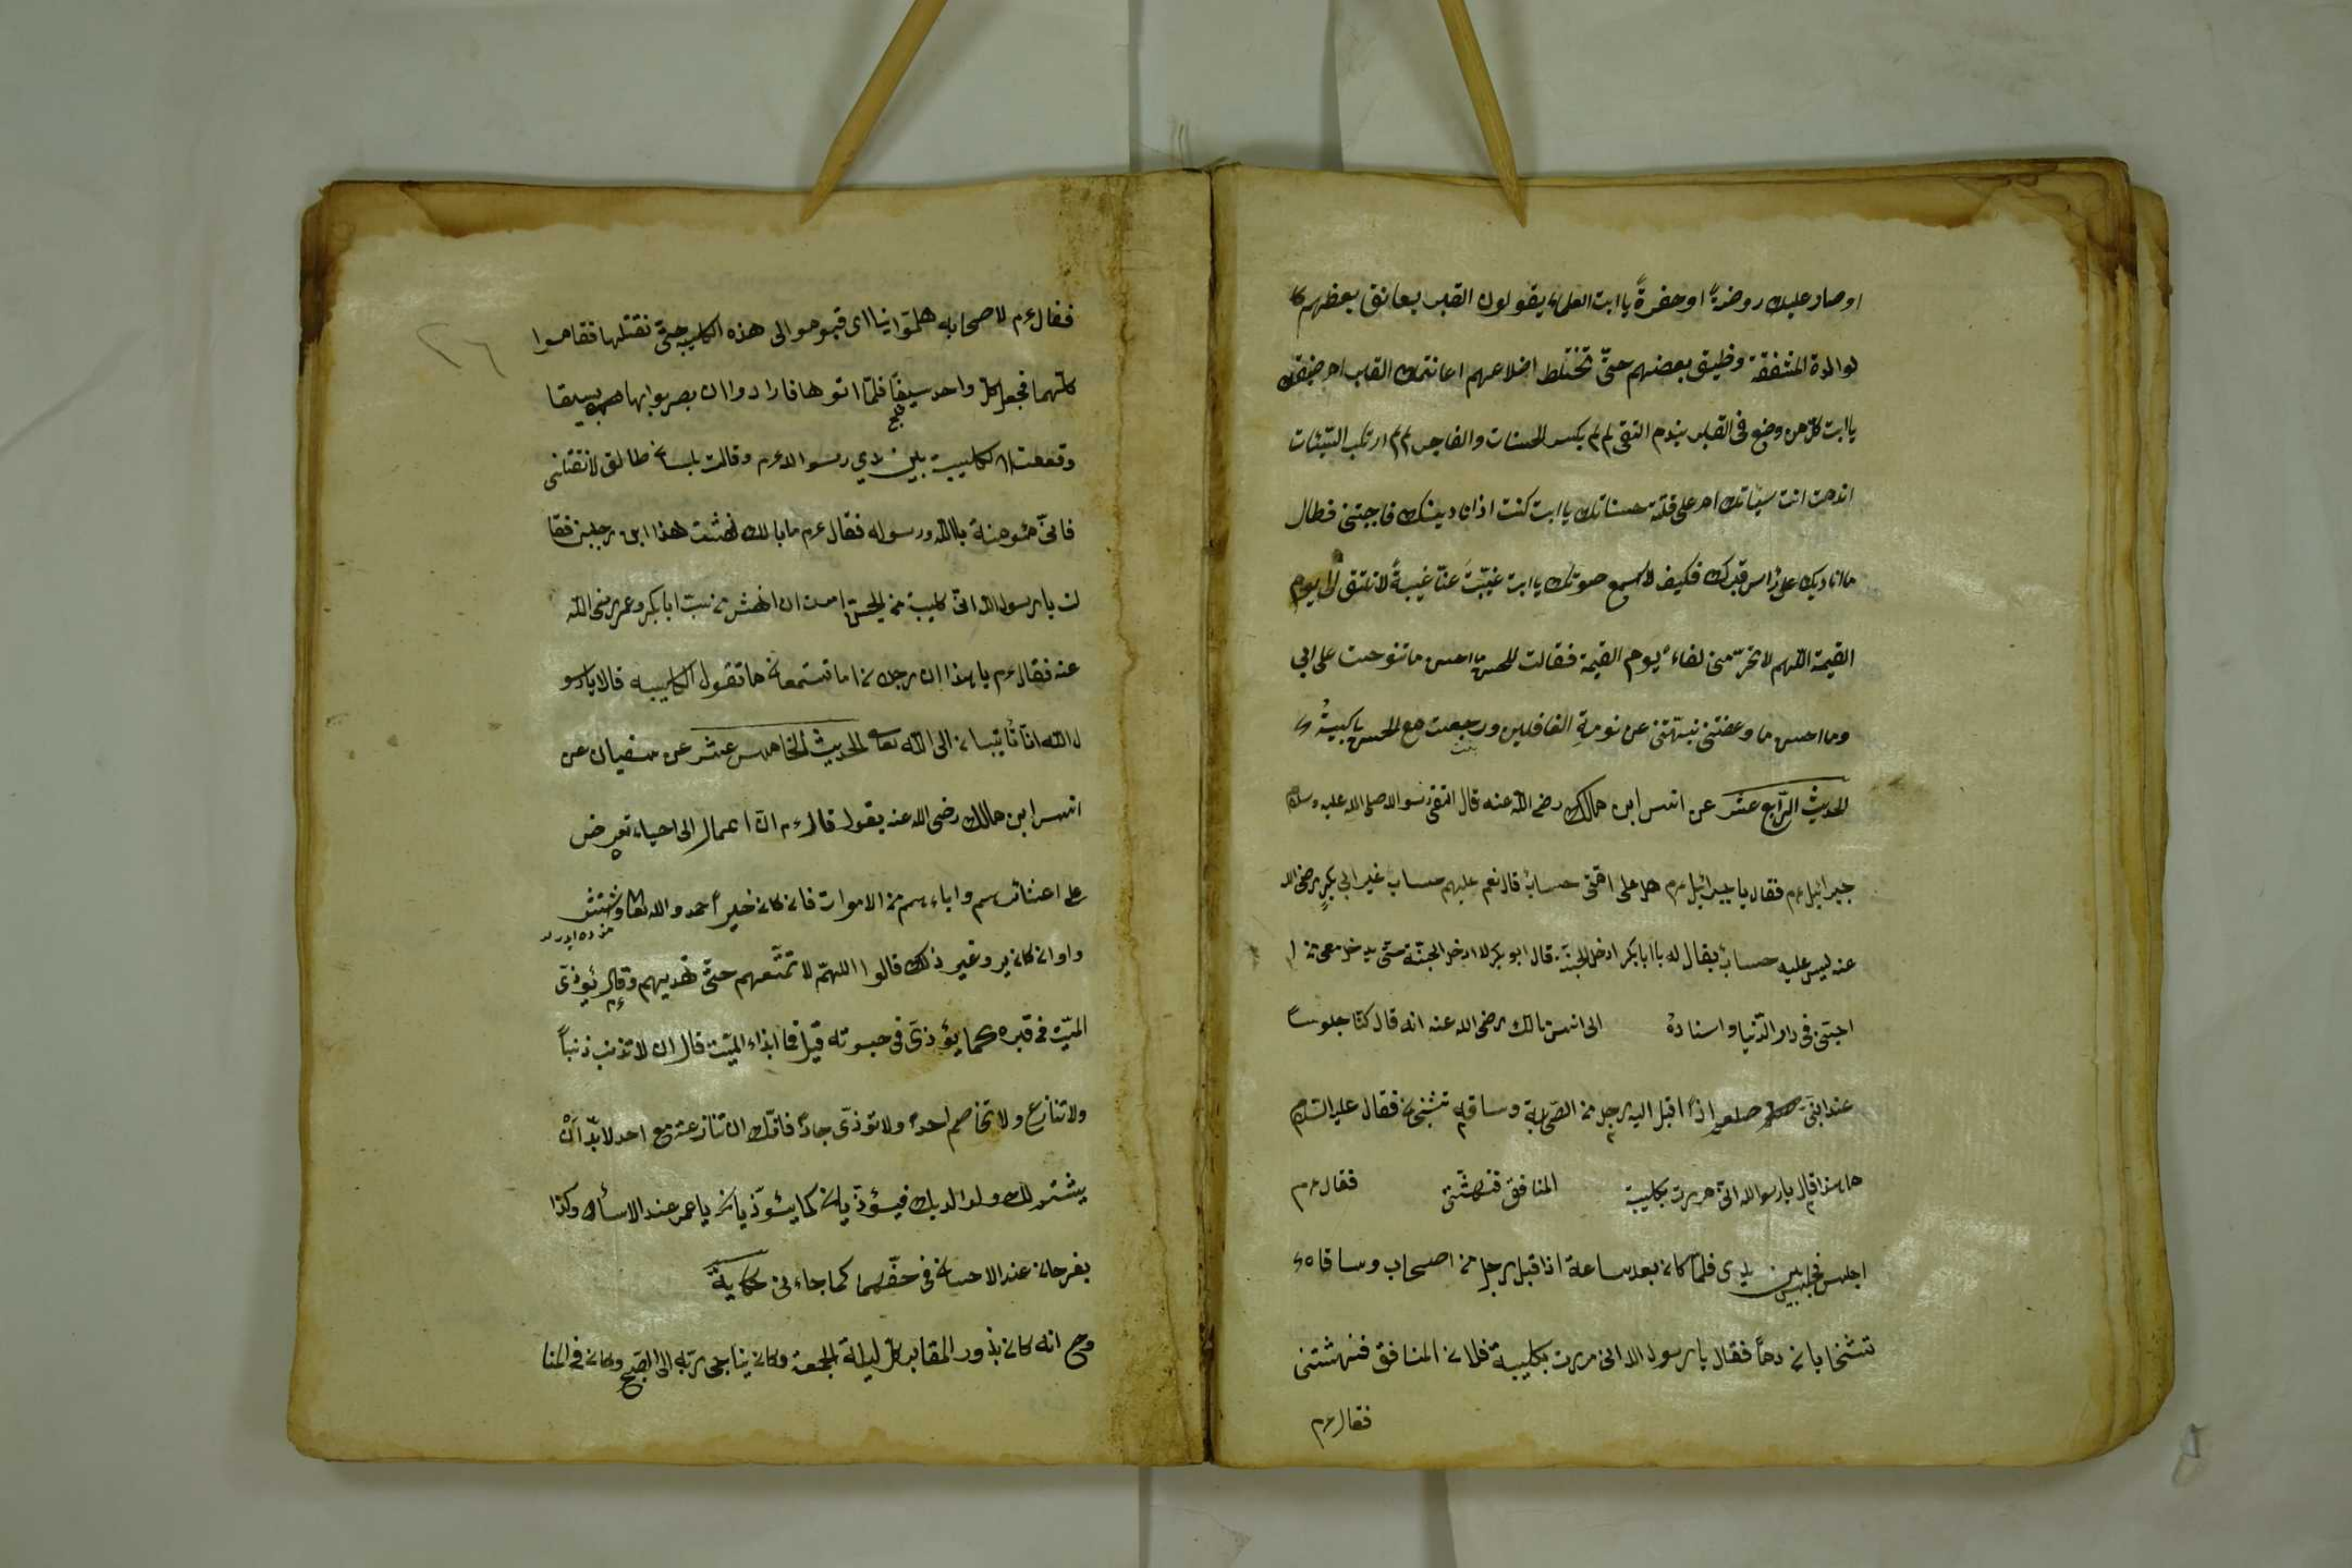 او صار عليك روضةً او حفرةً يا ابت العلماء يقولون القبر يعانق بعظهم كا
لوالدة المشفقة وظيق بعضهم حتّى تختلط اضلاعهم اعانقك القبر ام ضيقك
يا ابت كل من وضع فى القبر يندم التقى لم لم يكسر الحسنات والفاجر لم ارتكب السّيّئات
اندمت انت سيّاتك ام على قلّة حسناتك يا ابت كنت اذا ناديتك فاجبتنى فطال
ما اناديك على رأس قبرك فكيف لا اسمع صوتك يا ابت غيّبتَ عنّا غيبةً لا نلتقى الى يوم
القيمة اللّهم لا تحرّمنى لقاءه يوم القيمة فقالت للحسن ما احسن ما نوحت على ابى
وما احسن ما وعضتنى نبّهتنى عن نومةِ الغافلين ورجعت مع الحسن باكيةً
الحديث الرّابع عشر عن انس ابن مالك رضى الله عنه قال التقى رسوالله صلى الله عليه وسلم
جبرائيل عم فقال يا جبرائيل عم هل على امّتى حسابٌ قال نعم عليهم حساب غير ابى بكرٍ رضى الله
عنه ليس عليه حساب يقال له يا ابا بكر ادخل الجنّة قال ابو بكر لا ادخل الجنّة حتّى يدخل معى من ا
حبّنى فى دار الدّنيا واسناده الى انس مالك رضى الله عنه انه قال كنّا جلوساً
عند النّبىّ صلعم اذا اقبل اليه رجل من الصّحابة وساقه تشخب فقال عليه السّلام
ما هذا قال يا رسوالله انّى مررت بكليبة المنافق فنهشتنى فقال عم
اجلس فجلس بين يدى فلمّا كان بعد ساعة اذا اقبل رجل من اصحاب وساقاه
تشخبان دماً فقال يا رسول الله انى مررت بكليبة فلان المنافق فنهشتنى
فقال عم
٢٦
فقال عم لاصحابه هلمّوا بنا اى قوموا الى هذه الكليبة حتّى نقتلها فقاموا
كلّهما فجعل كل واحد سيفاً فلمّا اتوها فارادوا ان يضربوا بها
وقعت الكليبة بين يدي رسوالله عم وقالت بلسان طالق لا تقتلنى
فانّى مئومنة بالله ورسوله فقال عم ما بالك نهشت هذا ابن رجلين فقا
لت يا رسول الله انّى كليبة من الجن امرت ان انهش من سب ابا بكر وعمر رضى الله
عنه فقال عم يا هذا ان رجلان اما تستمعان ما تقول الكليبه قالا يا رسو
ل الله انا تائبان الى الله تعالى الحديث الخامس عشر عن سفيان عن
انس ابن مالك رضى الله عنه يقول قال عم انّ اعمال الى احياء تعرض
على اعشائرهم واباءهم من الاموات فان كان خيراً حمدو الله تعالى
واو ان كان يرو غير ذلك قالوا اللهمّ لا تمتّعهم حتّى تهديهم وقال عم يؤذى
الميّت فى قبره كما يؤذى فى حيوته قيل فما ايذاء الميّت قال ان لا تذنب ذنباً
ولا تنازع ولا تخاصم احداً ولا توذّى جاراً فانّك ان تنازعت مع احد لا بدّ انْ
يشتم لك ولوالديك فيؤذيان كما يئوذيان يا عمر عند الاسأك وكذا
يفرحان عند الاحسان فى حقّهما كما جاء فى حكاية
انه كان يذور المقابر كل ليلة الجمعة وكان يناجى ربّه الى الصّبح وكان فى المنا